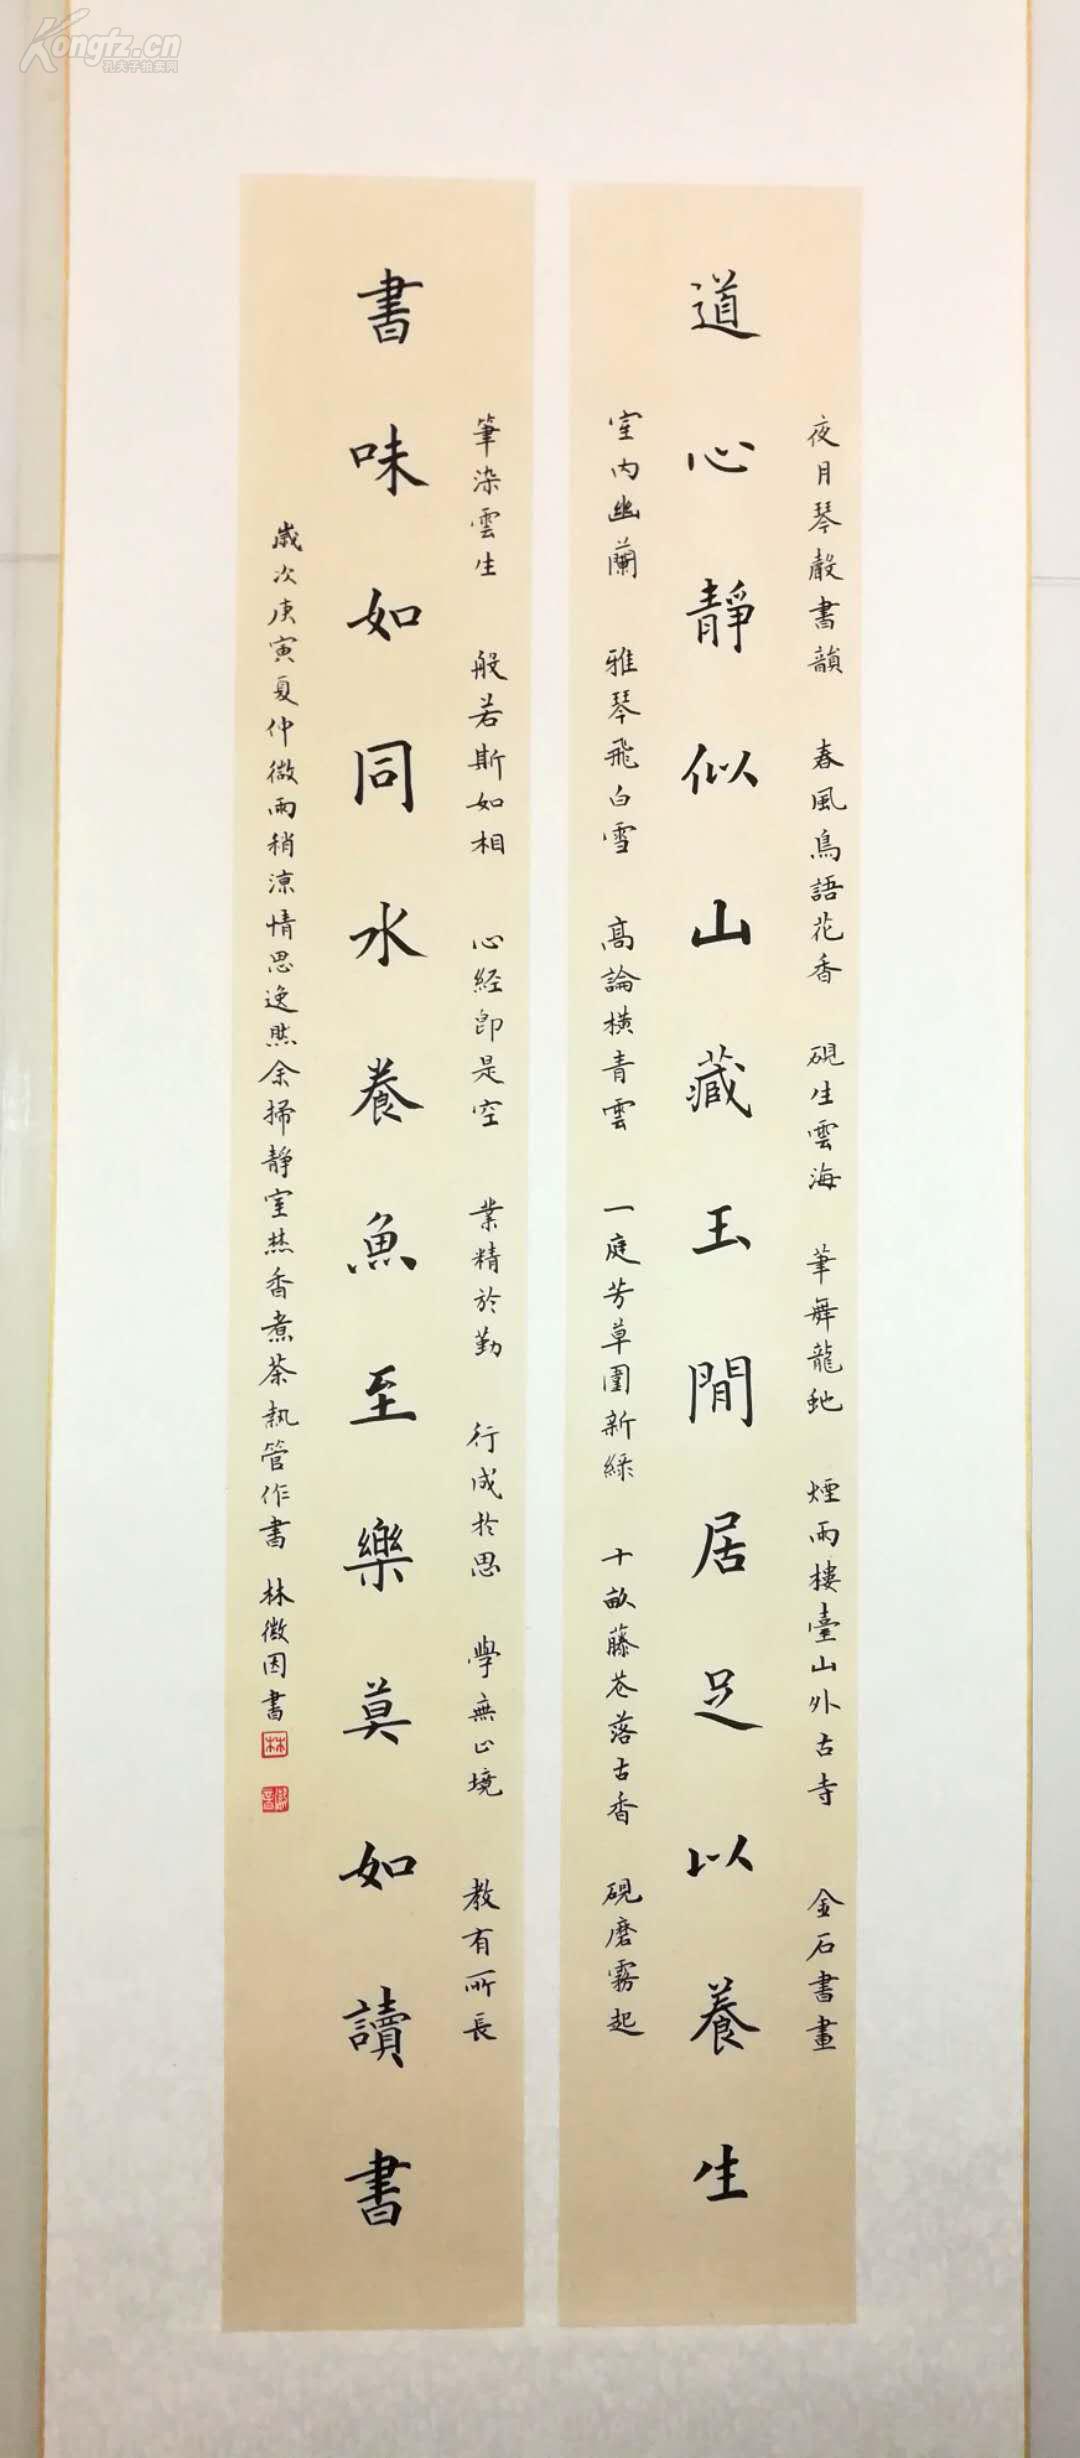 Kongfz.cn
孔夫子拍卖网
夜月琴聲書韻 春風鳥語花香 硯生雲海 筆舞龍虵 煙雨樓臺山外古寺 金石書畫
道心靜似山藏玉閒居足以養生
室内幽蘭 雅琴飛白雪 高論橫青雲 一庭芳草圍新綠 十畝藤花落古香 硯磨霧起
筆染雲生 般若斯如相 心経即是空 業精於勤 行成於思 學無止境 教有所長
書味如同水養魚至樂莫如讀書
歲次庚寅夏仲微雨稍涼情思逸然余掃静室𤋱香煮茶執管作書 林微因書
林